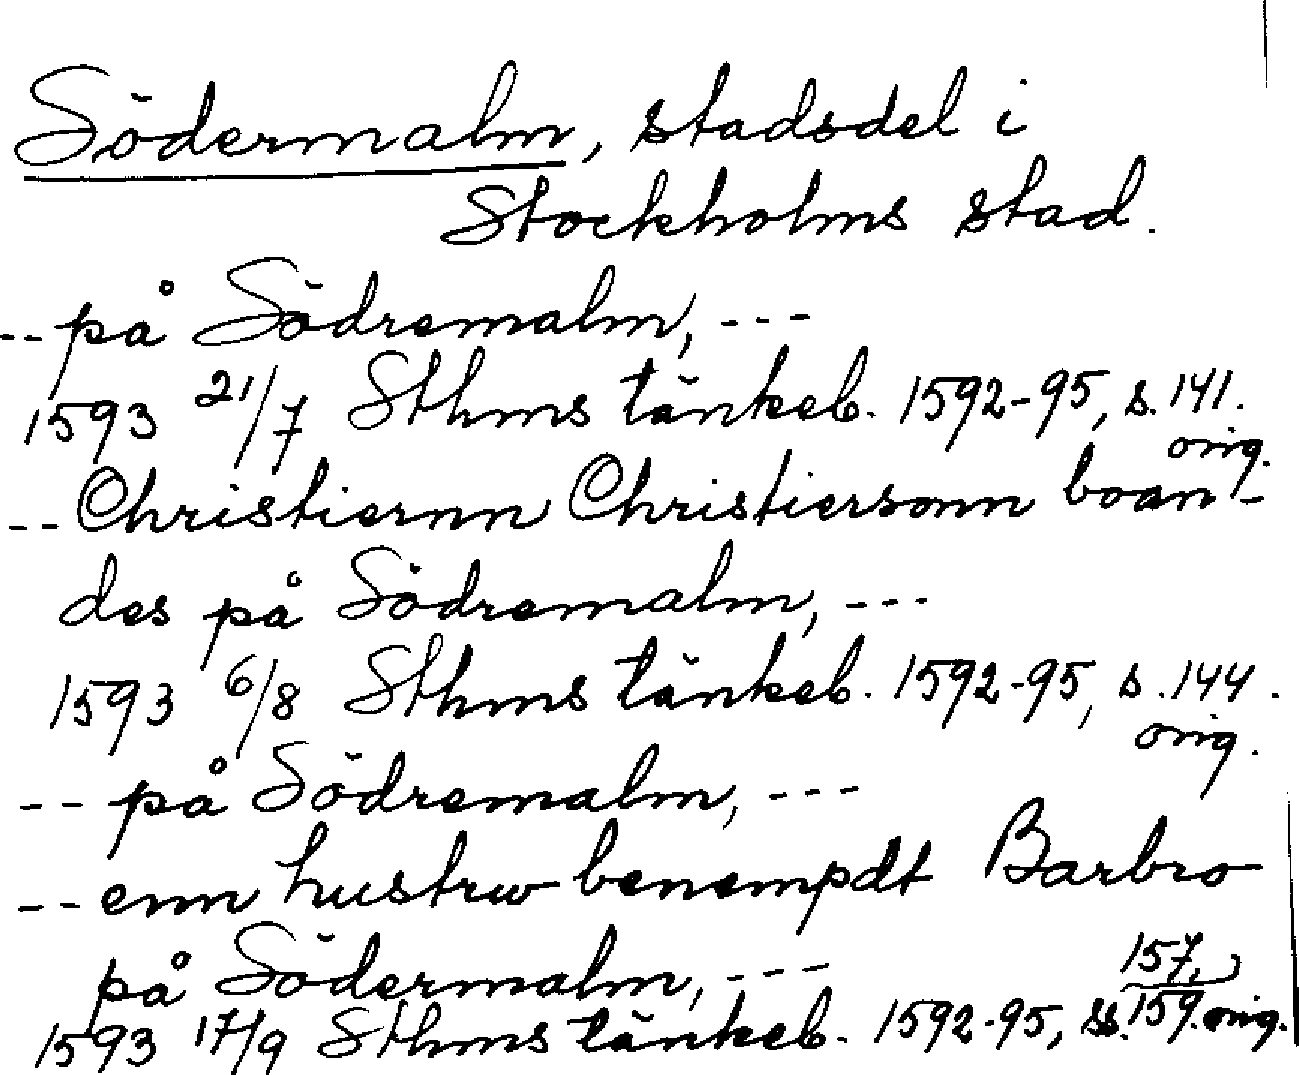 Södermalm, stadsdel i
Stockholms stad.
-- på Södremalm, ---
1593 21/7 Sthms tänkeb. 1592-95, s. 141.
orig.
-- Christiernn Christiersonn boan-
des på Södremalm, ---
1593 6/8 Sthms tänkeb. 1592-95, s. 144.
orig.
-- på Södremalm, ---
-- enn hustrw benempdt Barbro
på Södermalm, ---
157,
1593 17/9 Sthms tänkeb. 1592-95, ss. 159. orig.